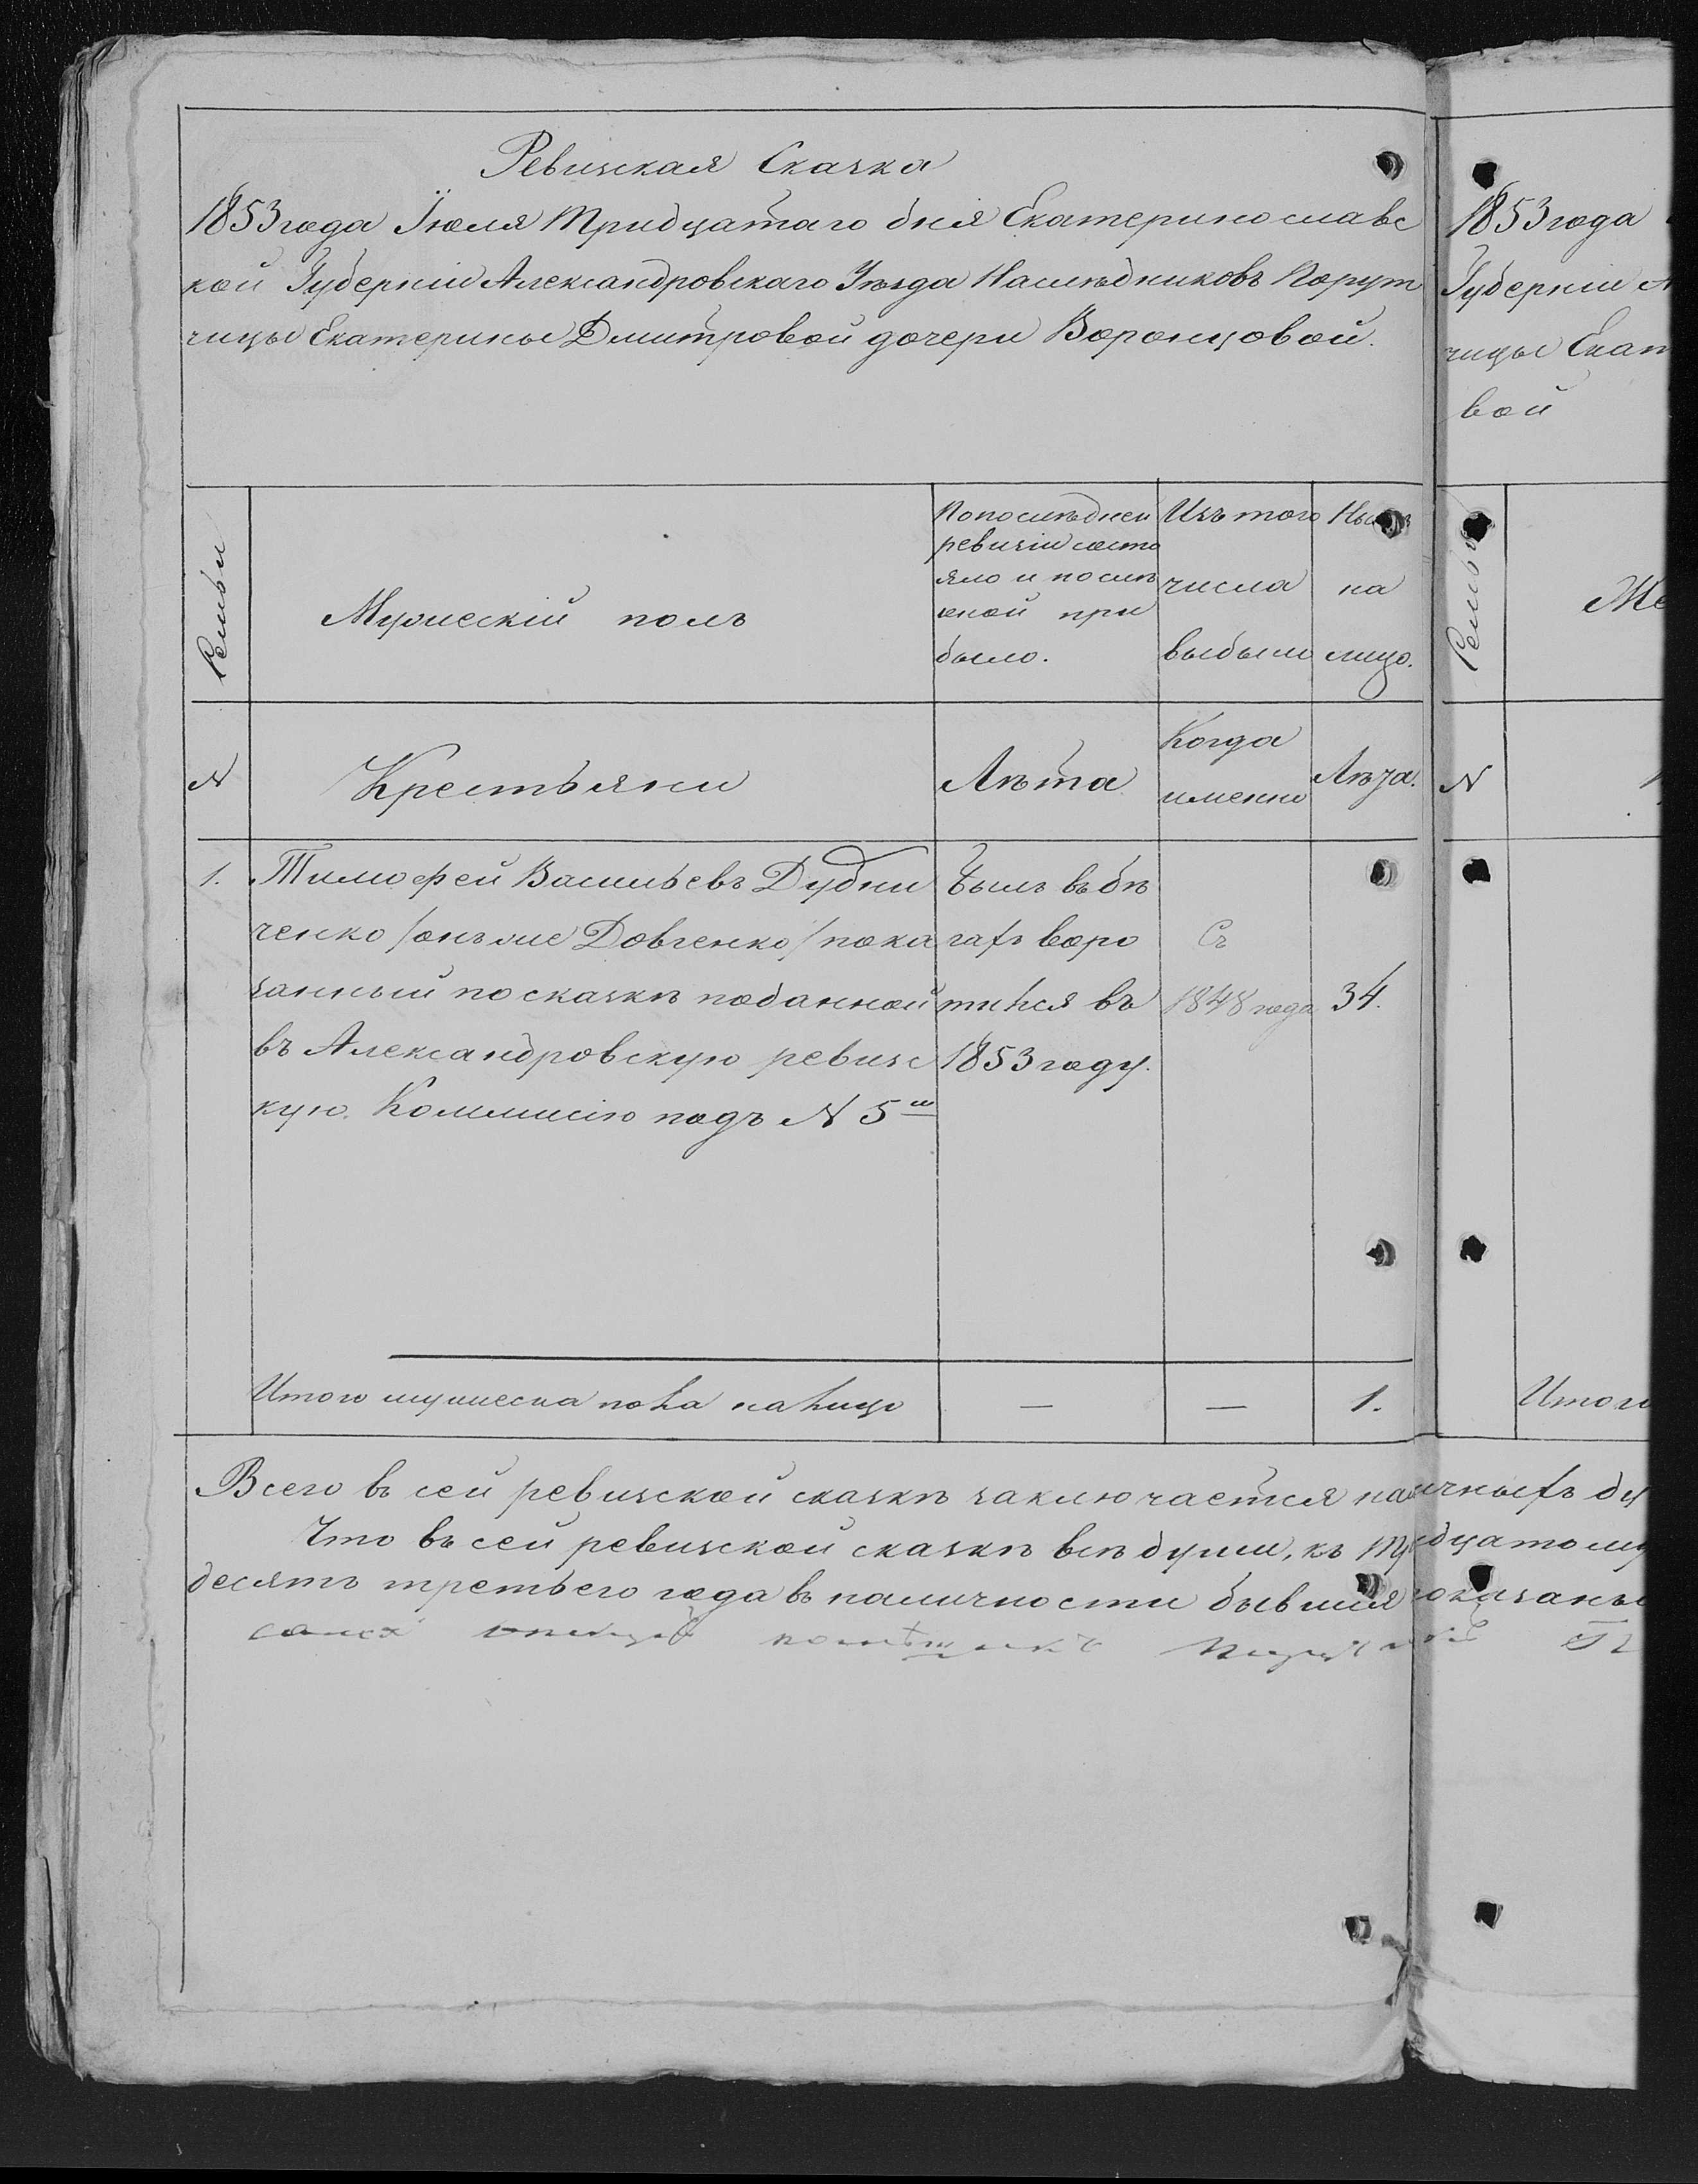 Ревизская Сказка
1853 года Іюля Тридцатаго дня Екатеринославс
кой Губерніи Александровскаго Уѣзда Наслѣдниковъ Порут
чицы Екатерины Дмитровой дочери Воронцовой.
Семьи
Мужескій полъ
По послѣдней
ревизіи состо
яло и послѣ
оной при
было.
Изъ того
числа
выбыли
на
лицо.
N
Крестьяни
Лѣта
Когда
именно
Лѣта.
1. Тимофей Васильевъ Дубни
ченко /онъ же Довгенко/ пока
занный по сказкѣ поданной
въ Александровскую ревизс
кую. Коммисію подъ N 5ᵐ
былъ въ бѣ
гахъ воро
тился въ
1853 году.
Съ
1848 года
34.
Итого мужеска пола на лицо — — 1.
Всего въ сей ревизской сказкѣ заключается наличныхъ ду
Что въ сей ревизской сказкѣ всѣ души, къ Тридцатому
десятъ третьего года въ наличности бывшія показаны
помѣщикъ
1853 года
Губерніи А
чицы Екат
вой
Семьи
Же
N
Итого